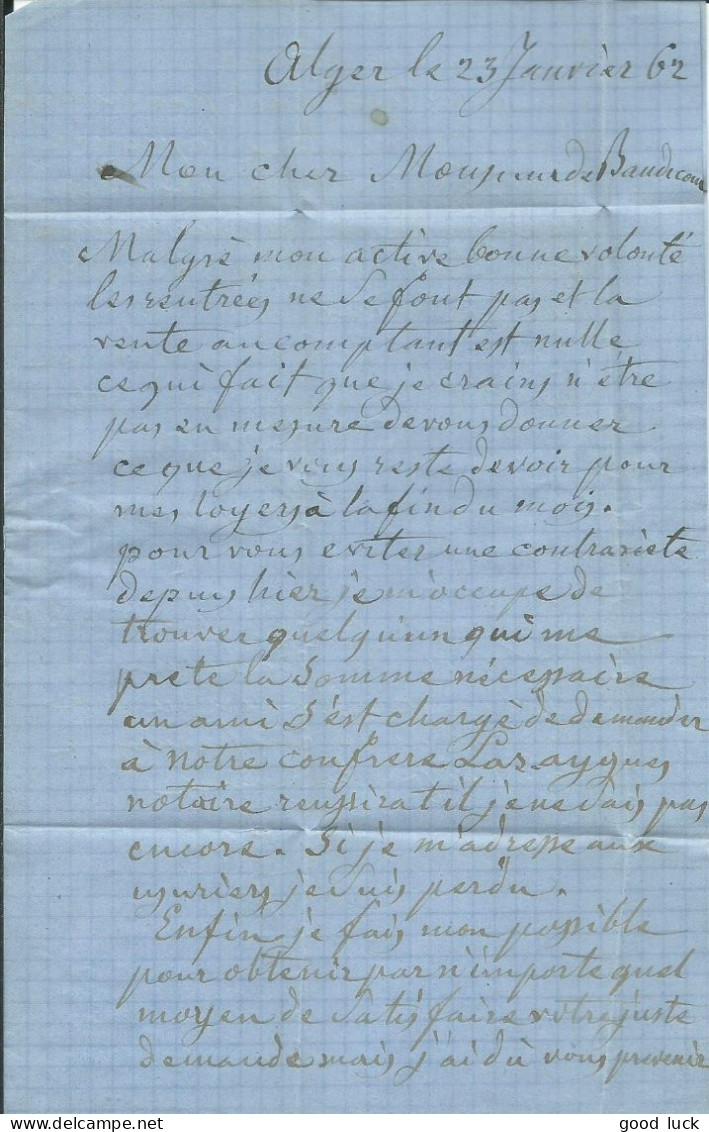 Alger le 23 Janvier 62
Mon cher Monsieur de Baudicour
Malgrè mon active bonne volonté
les rentrées ne se font pas et la
vente au comptant est nulle
ce qui fait que je crains n'etre
pas en mesure de vous donner
ce que je vous reste devoir pour
mes loyers à la fin du mois.
pour vous eviter une contrariete
depuis hier je m'occupe de
trouver quelqu'un qui me
prete la somme nécessaire
un ami s'est chargè de demander
à notre confrere Lazaygues
notaire reussirat il je ne sais pas
encore. Si je m'adresse aux
usuriers je suis perdu.
Enfin je fais mon possible
pour obtenir par n'importe quel
moyen de satisfaire votre juste
demande mais j'ai dù vous prevenir
www.delcampe.net
good luck